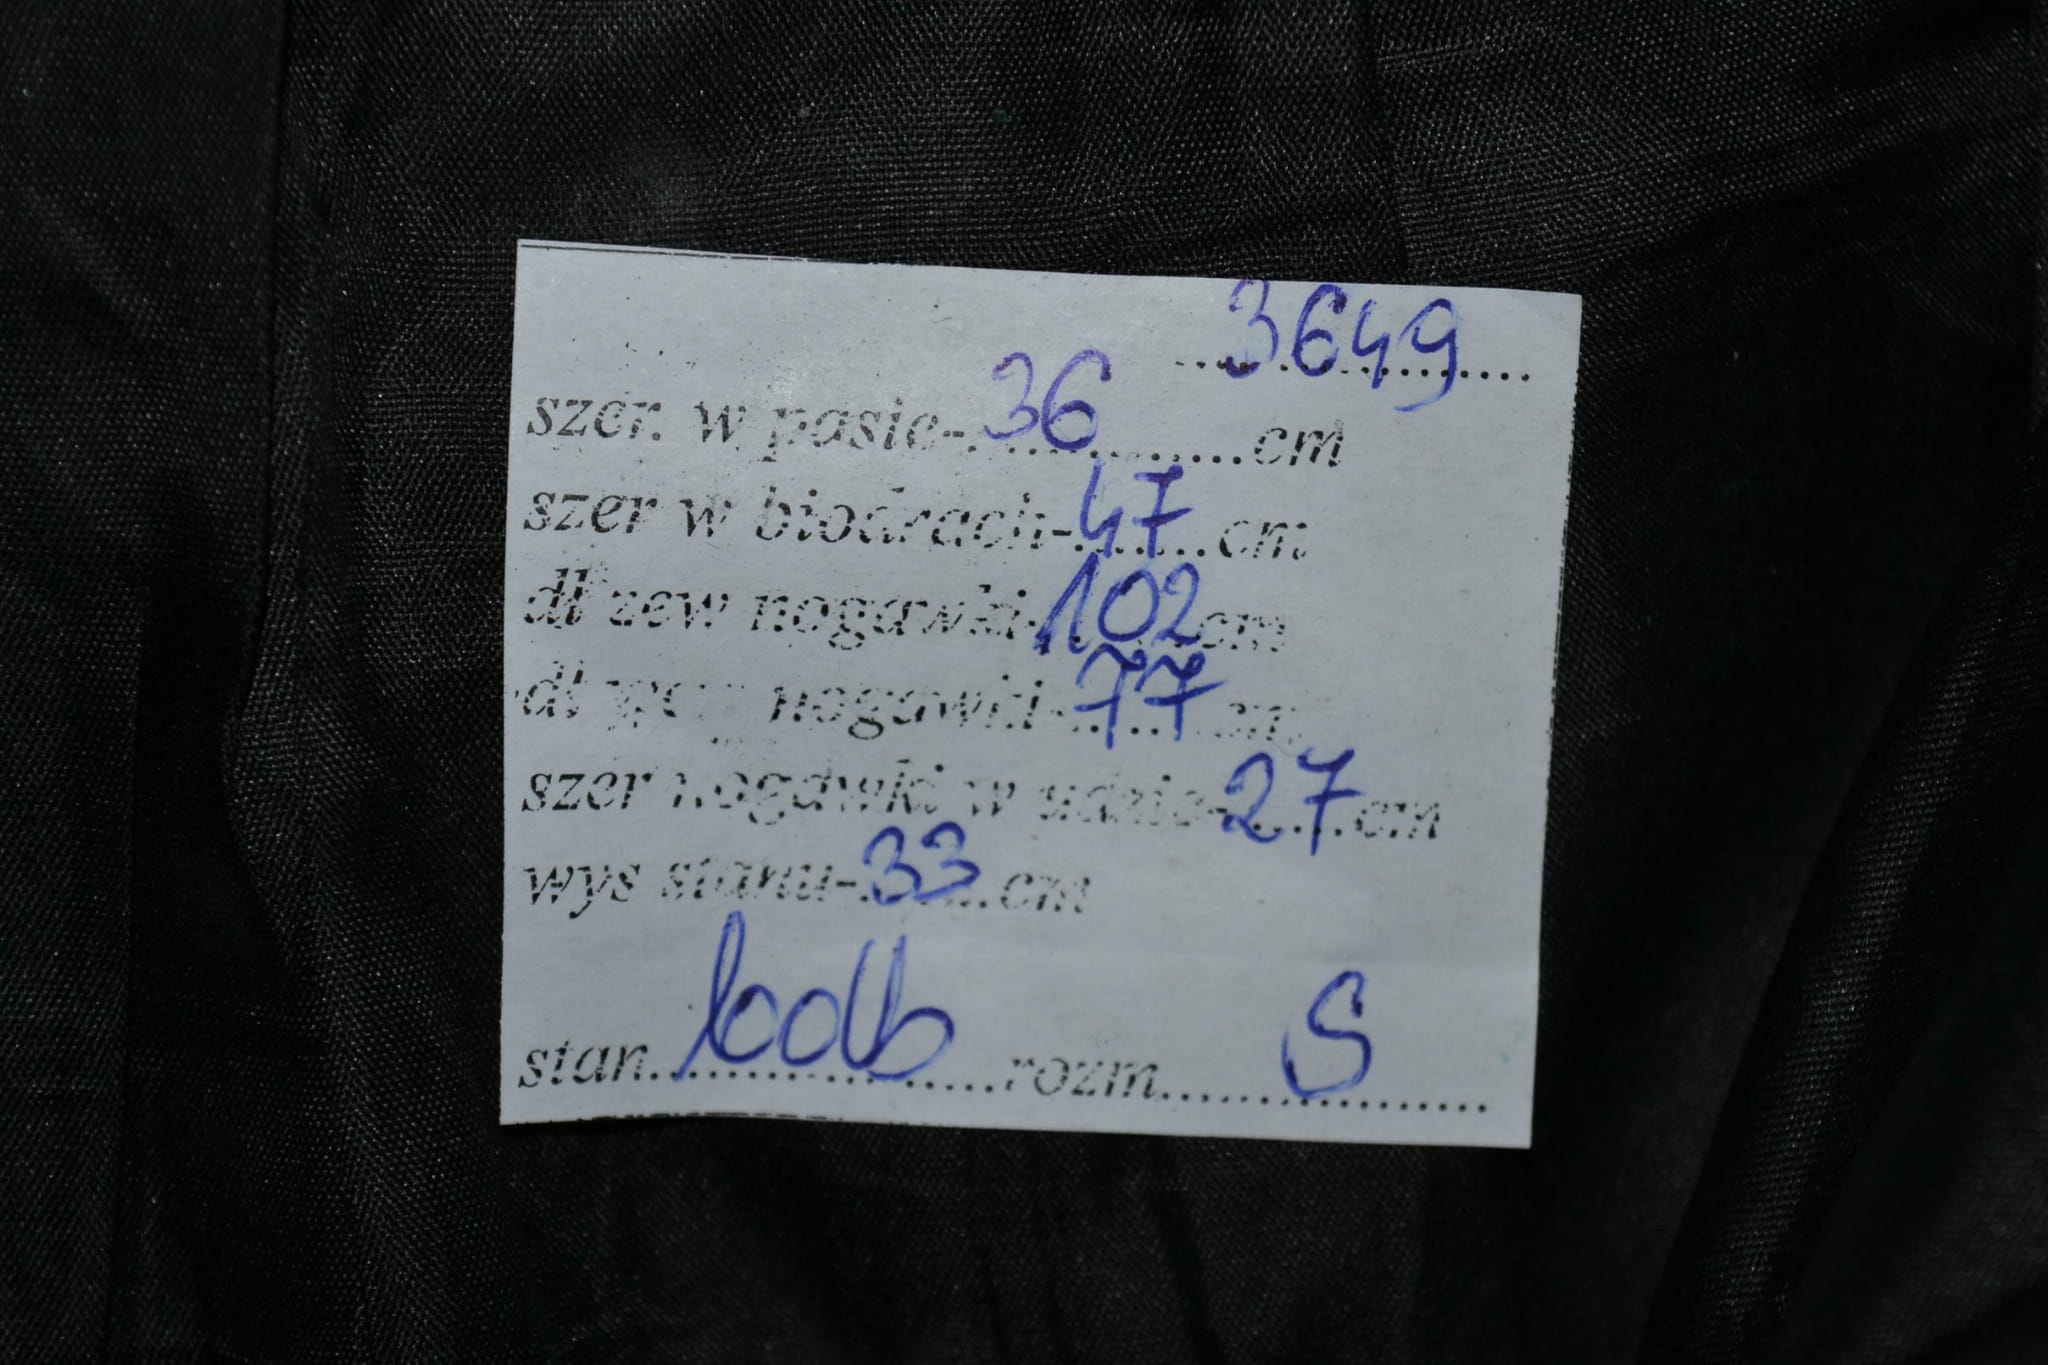 3649
szer. w pasie-36 cm
szer w biodrach-47 cm
dł zew nogawki-102 cm
dł nogawki-77 cm
szer nogawki w udzie-27 cm
wys stanu-33 cm
stan rozm S